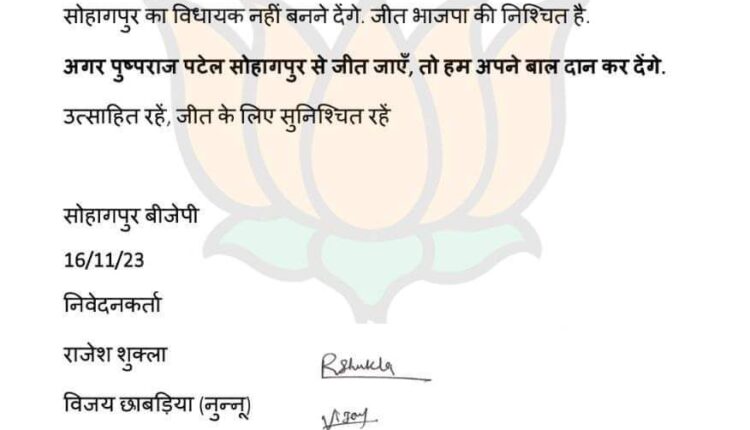 सोहागपुर का विधायक नहीं बनने देंगे. जीत भाजपा की निश्चित है.
अगर पुष्पराज पटेल सोहागपुर से जीत जाएँ, तो हम अपने बाल दान कर देंगे.
उत्साहित रहें, जीत के लिए सुनिश्चित रहें
सोहागपुर बीजेपी
16/11/23
निवेदनकर्ता
राजेश शुक्ला RShukla
विजय छाबड़िया (नुन्नू) Vijay